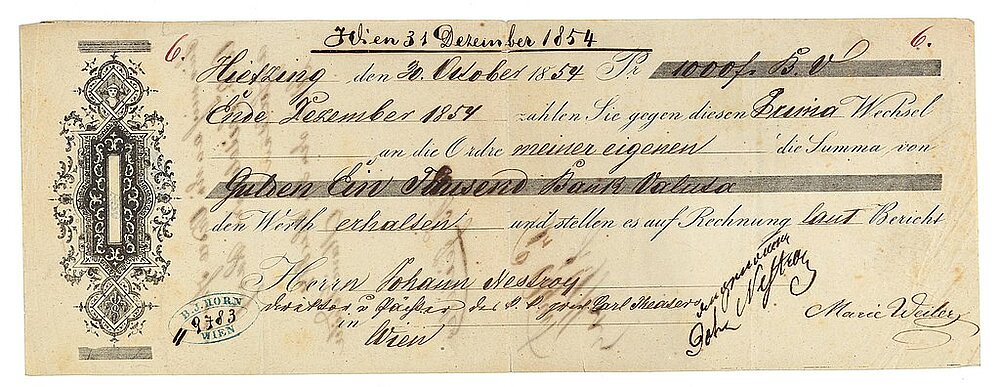 Wien 31 Dezember 1854
6. 6.
Hietzing den 30. October 1854 Pr 1000 f. B. V
Ende Dezember 1854 zahlen Sie gegen diesen Prima Wechsel
an die Ordre meiner eigenen die Summa von
Gulden Ein Tausend Bank Valuta
den Werth erhalten und stellen es auf Rechnung laut Bericht
Herrn Johann Nestroy
Direktor u Pächter des k. k. priv. Carl Theaters
in
Wien
angenommen
Joha Nestroy
Marie Weiler
B. LHORN
9783
WIEN